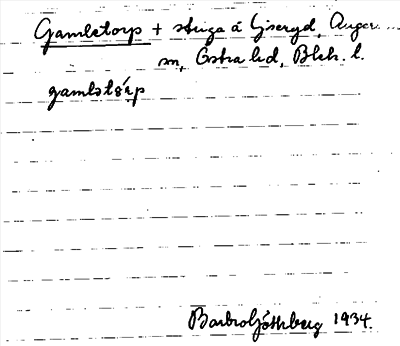 Gamletorp + stuga å Giseryd, Auger...
sn, Östra hd, Blek. l.
gamlətórp
Barbro Göthberg 1934.